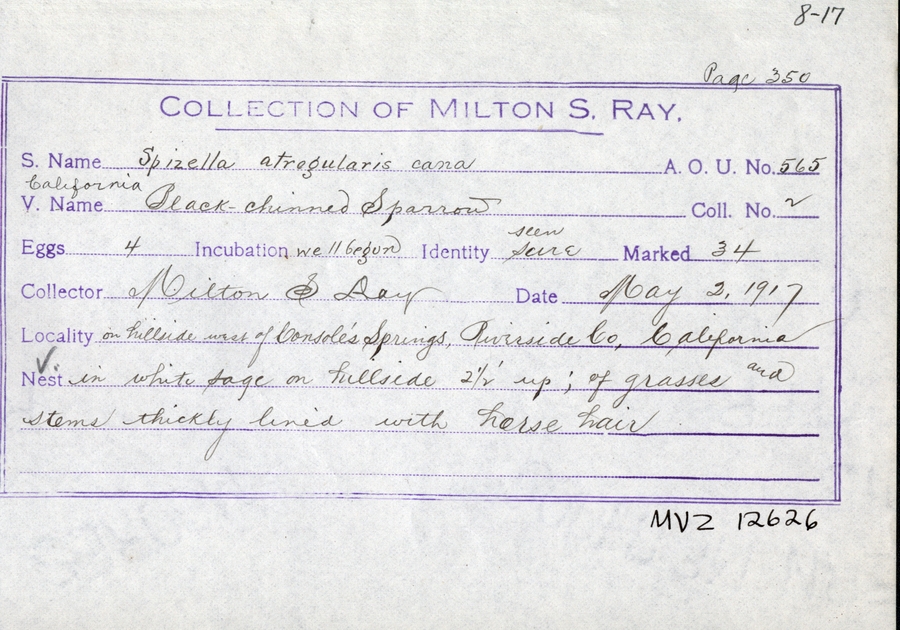 8-17
Page 350
COLLECTION OF MILTON S. RAY.
S. Name Spizella atrogularis cana A. O. U. No. 565
California
V. Name Black-chinned Sparrow Coll. No. 2
seen
Eggs 4 Incubation well begun Identity sure Marked 34
Collector Milton S Ray Date May 2, 1917
Locality on hillside west of Console's Springs, Riverside Co, California
Nest in white sage on hillside 2½' up; of grasses and
stems thickly lined with horse hair
MVZ 12626